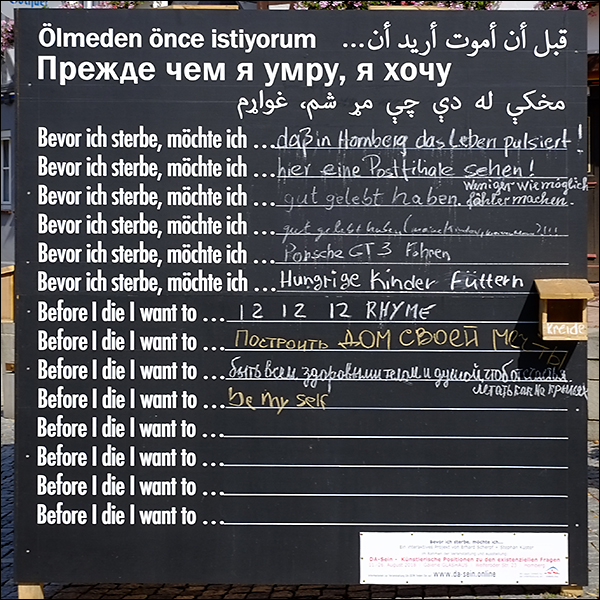 Ölmeden önce istiyorum قبل أن أموت أريد أن...
Прежде чем я умру, я хочу
مخکې له دې چې مړ شم، غواړم
Bevor ich sterbe, möchte ich ... daß in Hornberg das Leben pulsiert!
Bevor ich sterbe, möchte ich ... hier eine Postfiliale sehen!
Bevor ich sterbe, möchte ich ... gut gelebt haben. Weniger wie möglich
fähler machen.
Bevor ich sterbe, möchte ich ... gut gelebt haben
Bevor ich sterbe, möchte ich ... Porsche GT3 Fahren
Bevor ich sterbe, möchte ich ... Hungrige Kinder Füttern
Before I die I want to ... 12 12 12 RHYME
kreide
Before I die I want to ... Построить ДОМ СВОЕЙ МЕЧТЫ
Before I die I want to ... быть всем здоровыми телом и душой чтоб
летать как на крыльях
Before I die I want to ... be my self
Before I die I want to ...
Before I die I want to ...
Before I die I want to ...
Before I die I want to ...
Bevor ich sterbe, möchte ich...
DA-Sein - Künstlerische Positionen zu den existenziellen Fragen
www.da-sein.online